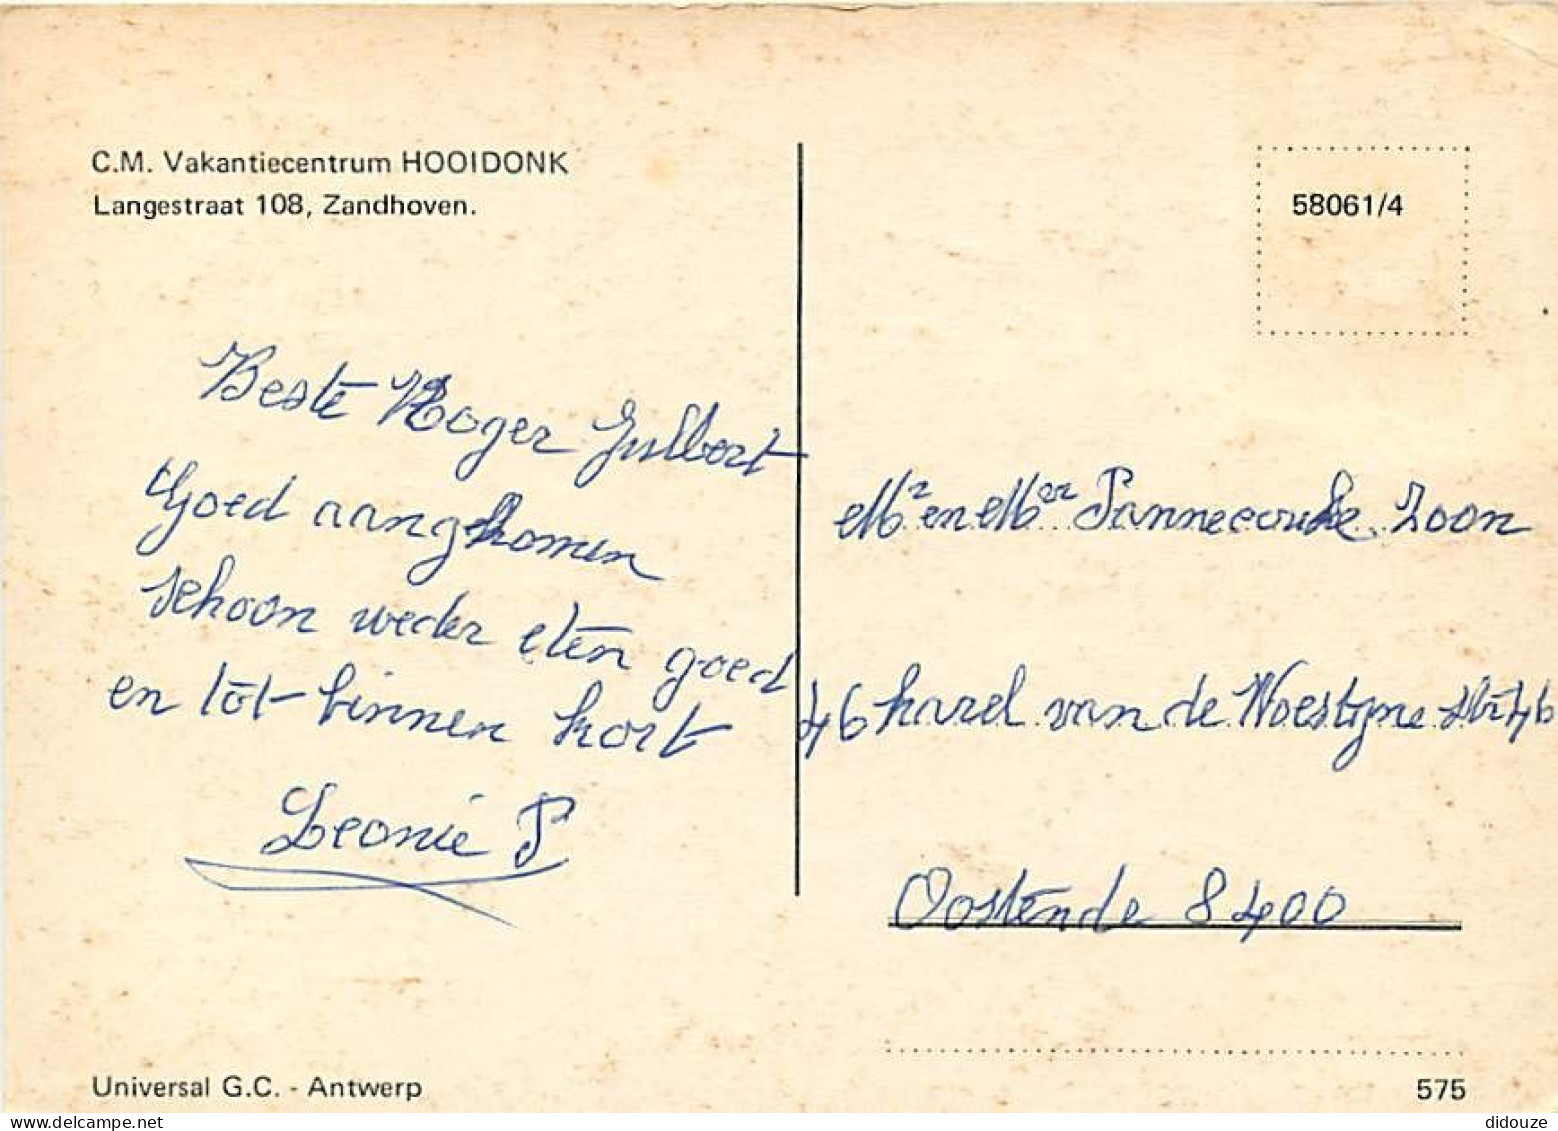 C.M. Vakantiecentrum HOOIDONK
Langestraat 108, Zandhoven.
58061/4
Beste Roger
Goed aangekomen
schoon weder eten goed
en tot binnen kort
Leonie P
Mr en Mer Panneecouke Zoon
46 karel van de Woestyne 46
Oostende 8400
Universal G.C. - Antwerp
575
didouze